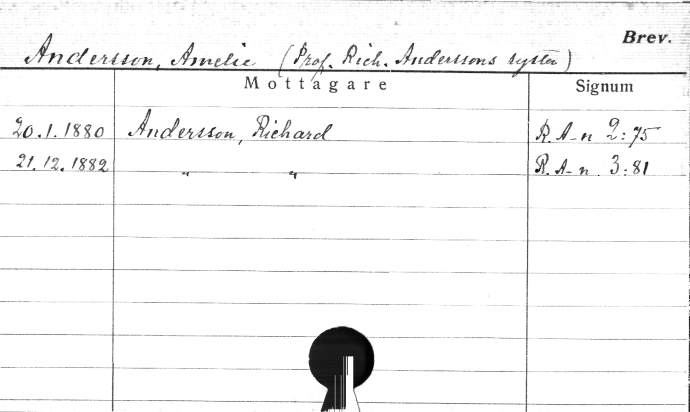 Brev.
Andersson, Amelie (Prof. Rich. Anderssons syster)
Mottagare Signum
20.1.1880 Andersson, Richard R. A-n 2:75
21.12.1882 " " R. A-n 3:81